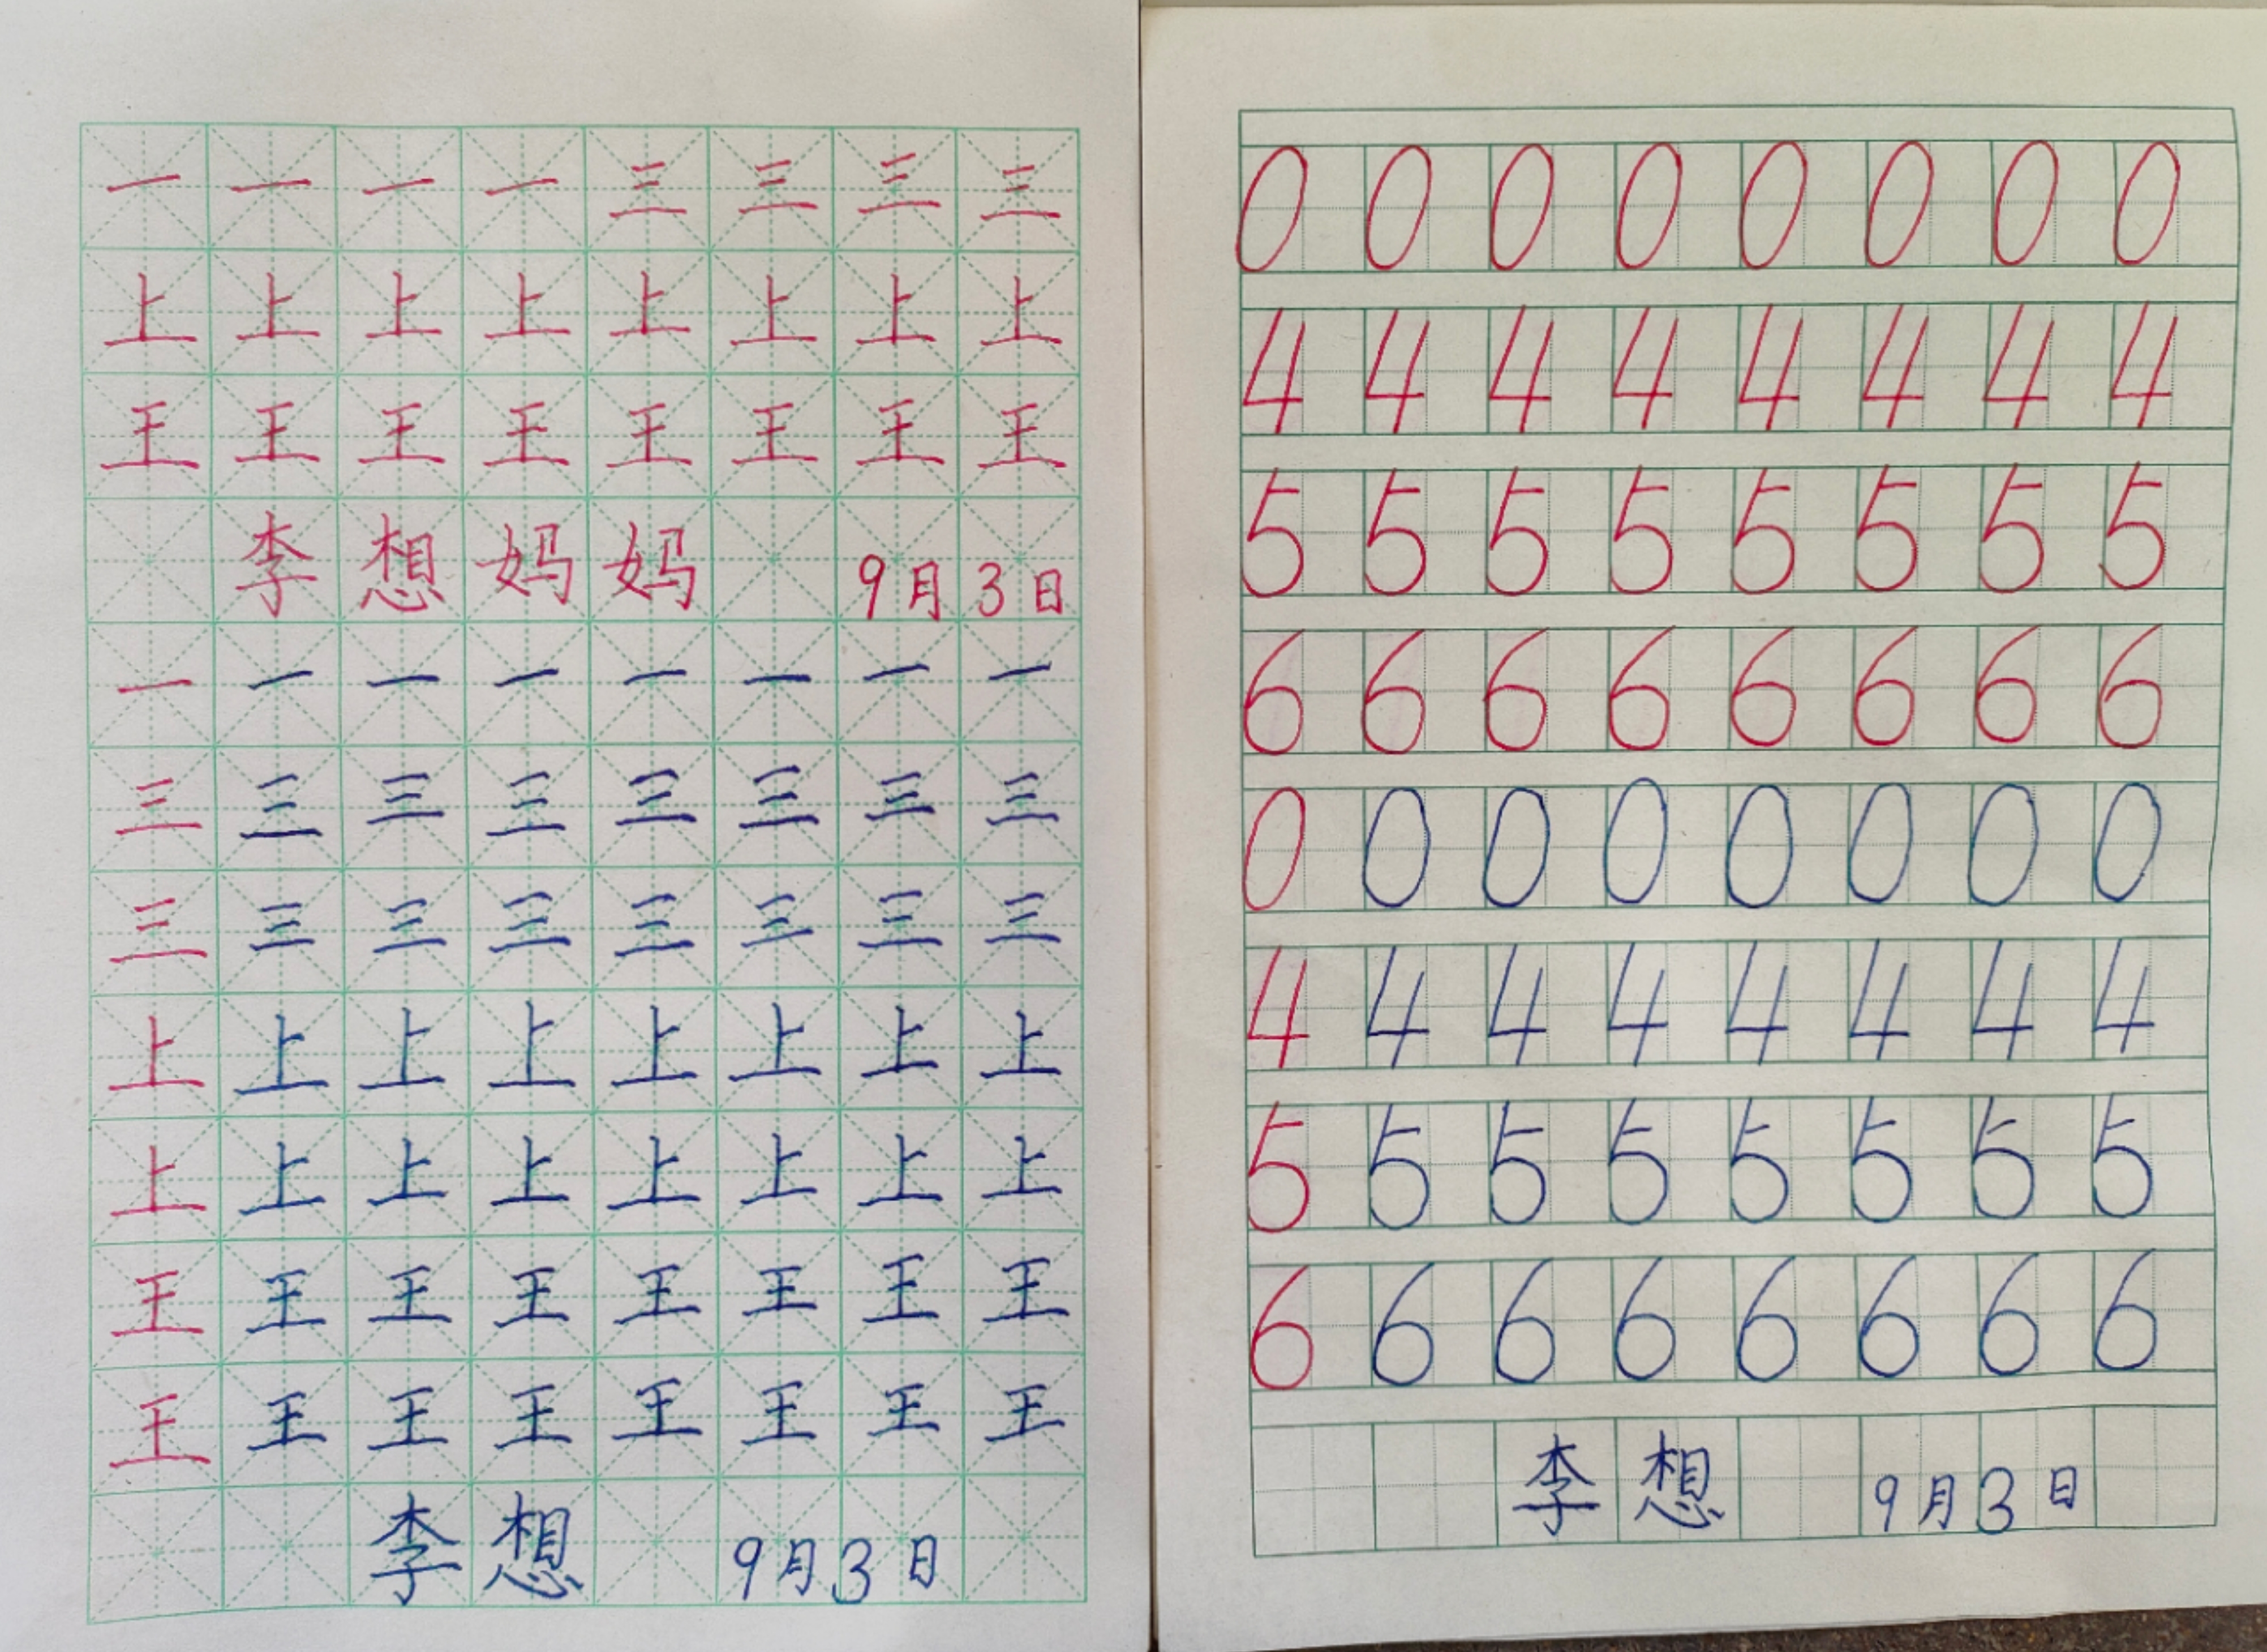 一 一 一 一 三 三 三 三
上 上 上 上 上 上 上 上
王 王 王 王 王 王 王 王
李想妈妈 9月3日
一 一 一 一 一 一 一 一
三 三 三 三 三 三 三 三
三 三 三 三 三 三 三 三
上 上 上 上 上 上 上 上
上 上 上 上 上 上 上 上
王 王 王 王 王 王 王 王
王 王 王 王 王 王 王 王
李想 9月3日
0 0 0 0 0 0 0 0
4 4 4 4 4 4 4 4
5 5 5 5 5 5 5 5
6 6 6 6 6 6 6 6
0 0 0 0 0 0 0 0
4 4 4 4 4 4 4 4
5 5 5 5 5 5 5 5
6 6 6 6 6 6 6 6
李想 9月3日